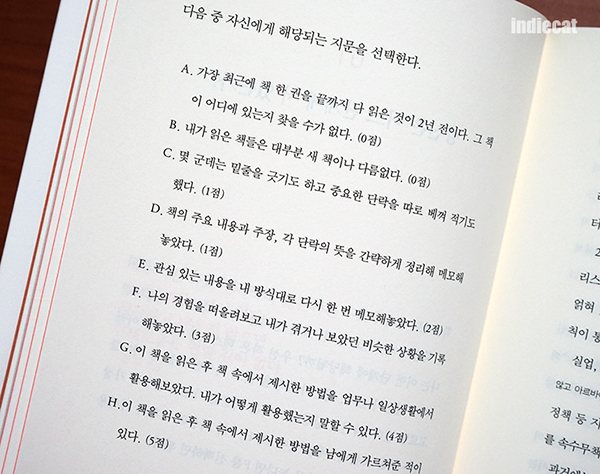 indiecat
다음 중 자신에게 해당되는 지문을 선택한다.
A. 가장 최근에 책 한 권을 끝까지 다 읽은 것이 2년 전이다. 그 책
이 어디에 있는지 찾을 수가 없다. (0점)
B. 내가 읽은 책들은 대부분 새 책이나 다름없다. (0점)
C. 몇 군데는 밑줄을 긋기도 하고 중요한 단락을 따로 베껴 적기도
했다. (1점)
D. 책의 주요 내용과 주장, 각 단락의 뜻을 간략하게 정리해 메모해
놓았다. (1점)
E. 관심 있는 내용을 내 방식대로 다시 한 번 메모해놓았다. (2점)
F. 나의 경험을 떠올려보고 내가 겪거나 보았던 비슷한 상황을 기록
해놓았다. (3점)
G. 이 책을 읽은 후 책 속에서 제시한 방법을 업무나 일상생활에서
활용해보았다. 내가 어떻게 활용했는지 말할 수 있다. (4점)
H. 이 책을 읽은 후 책 속에서 제시한 방법을 남에게 가르쳐준 적이
있다. (5점)
터
2
리스
얽혀
칙이 통
실업,
않고 아르바
정책 등 지
를 속수무책